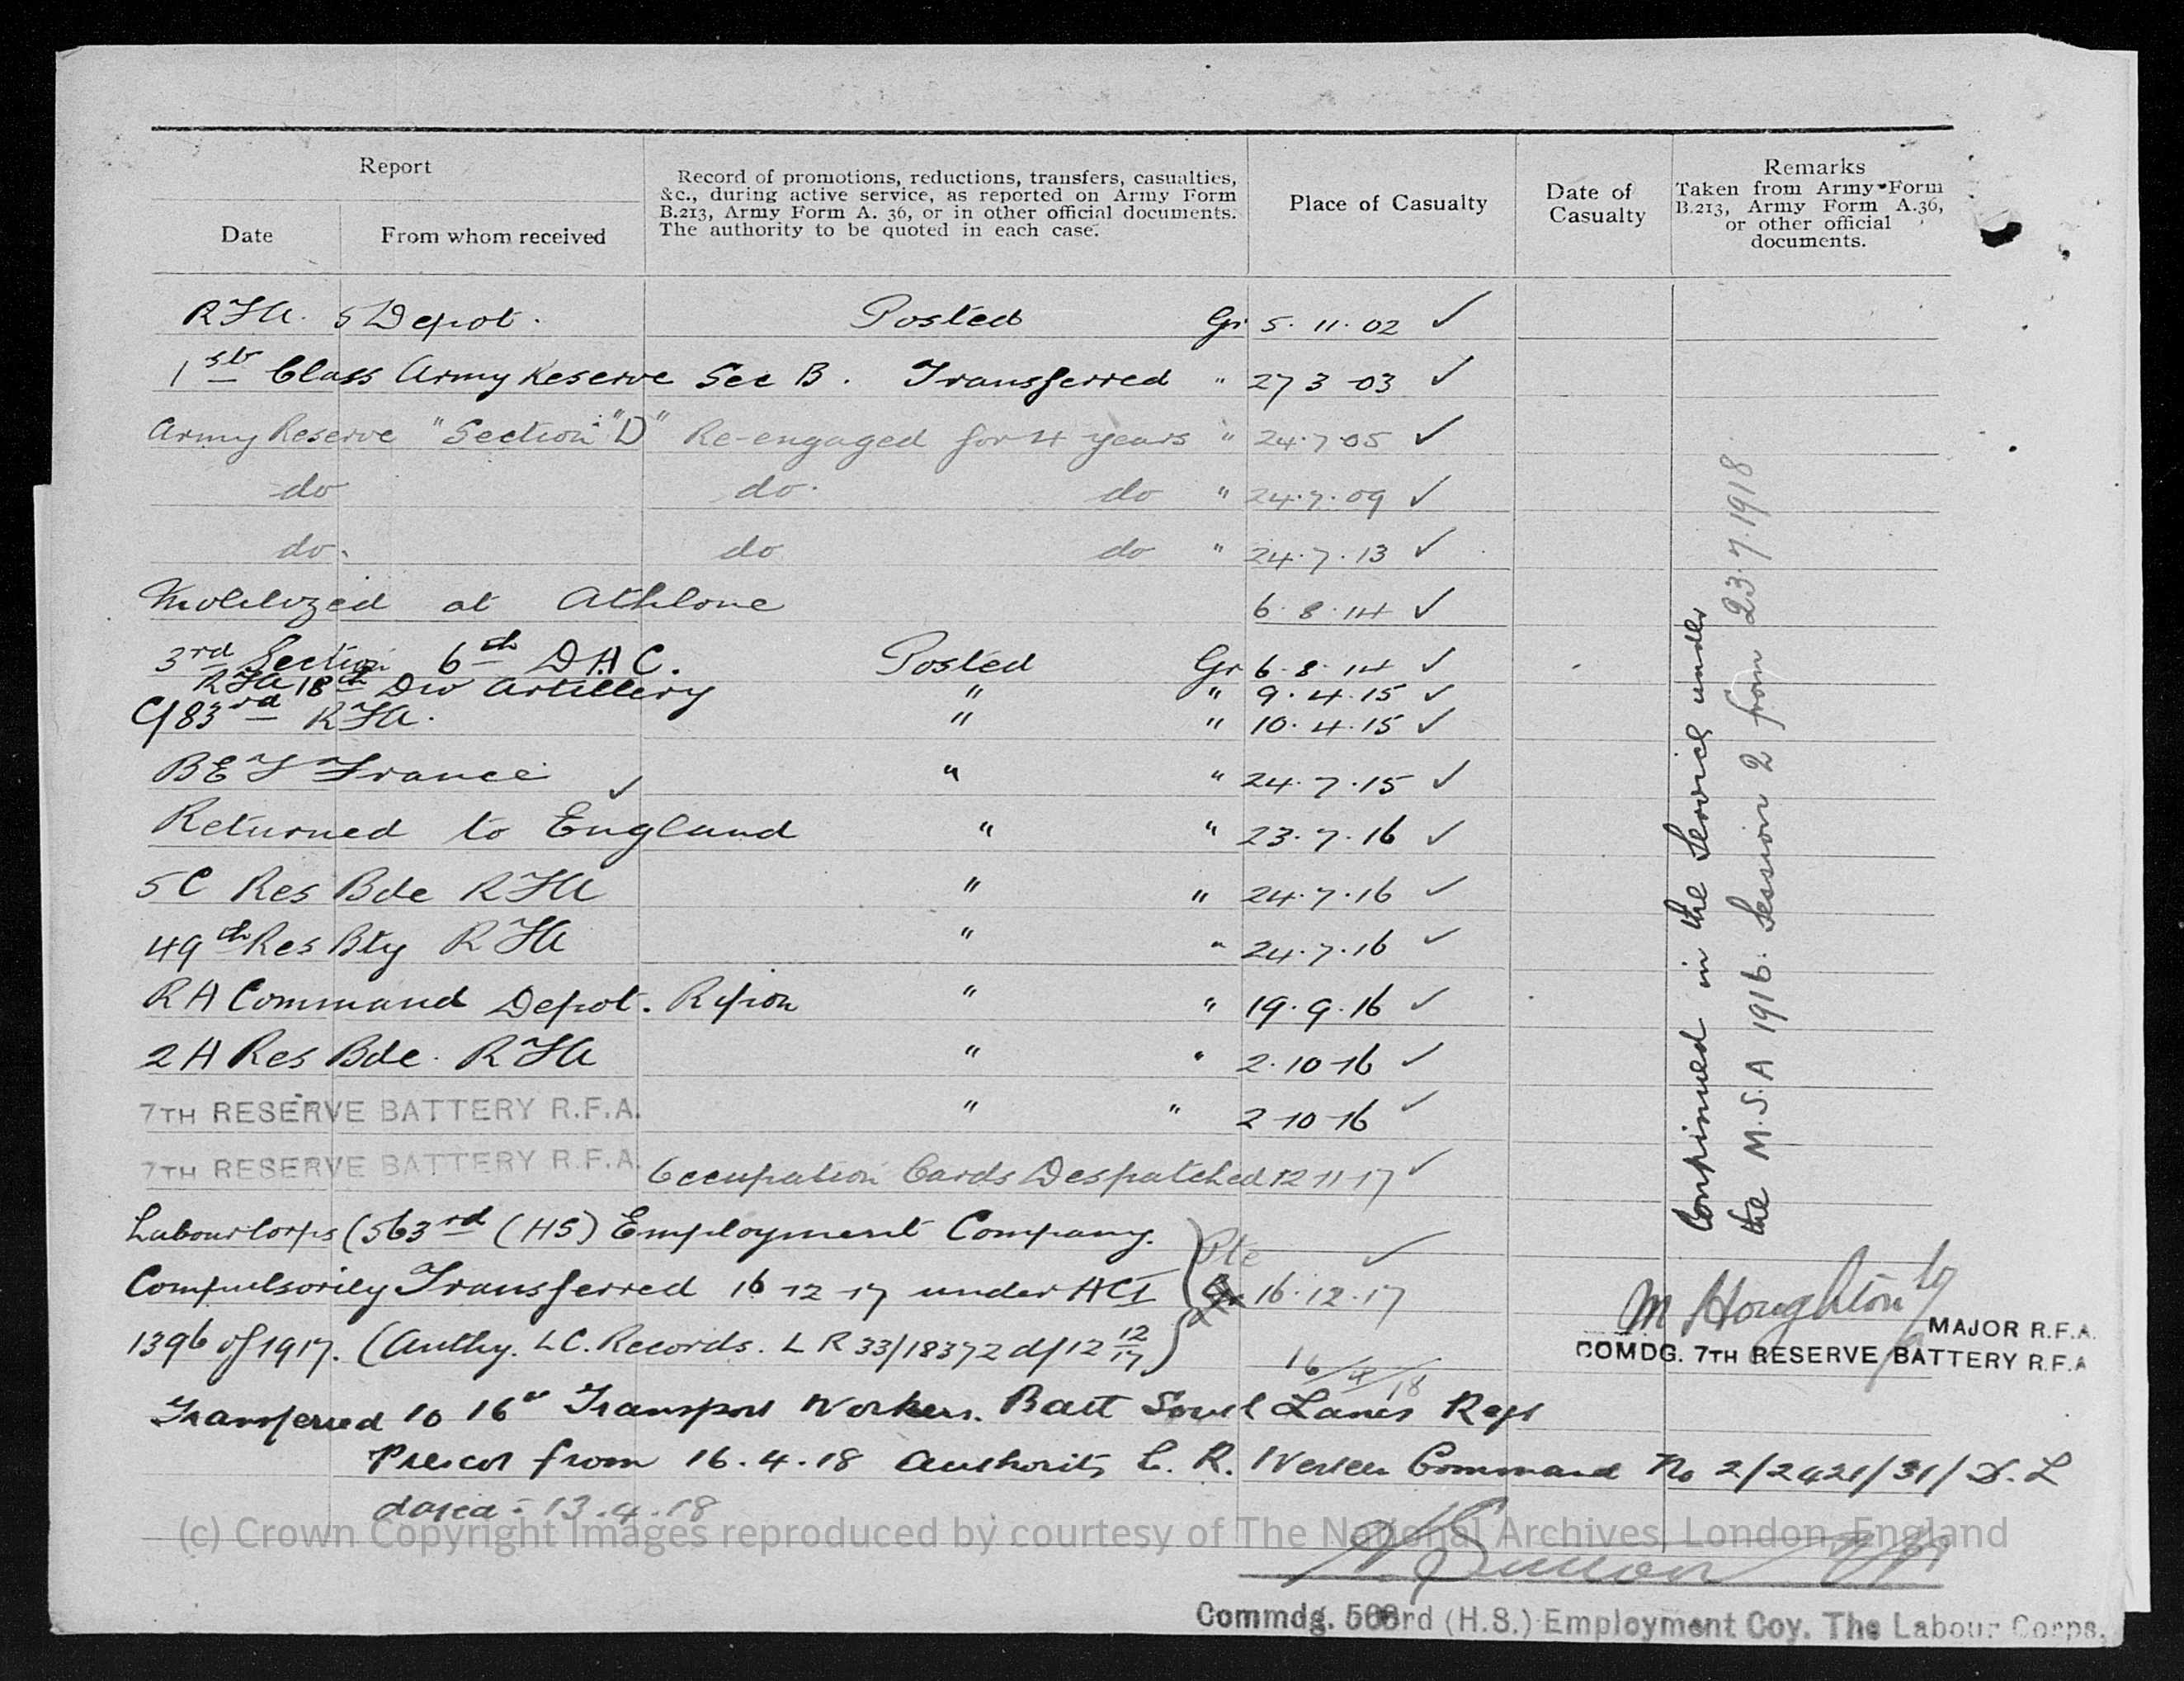 Report
Date
From whom received
Record of promotions, reductions, transfers, casualties,
&c., during active service, as reported on Army Form
B.213, Army Form A. 36, or in other official documents.
The authority to be quoted in each case.
Place of Casualty
Date of
Casualty
Remarks
Taken from Army Form
B.213, Army Form A.36,
or other official
documents.
RFA. 5 Depot. Posted Gr 5. 11. 02 ✓
1st Class Army Reserve Sec B. Transferred " 27 3 -03 ✓
Army Reserve "Section "D" Re-engaged for 4 years " 24.7.05 ✓
do do. do " 24.7.09 ✓
do. do do " 24.7.13 ✓
Mobilized at Athlone 6.8.14 ✓
3rd Section 6th D.A.C. Posted Gr 6.8.14 ✓
RFA 18th Div Artillery " " 9.4.15 ✓
C/83rd RFA. " " 10.4.15 ✓
BEF France ✓ " " 24.7.15 ✓
Returned to England " " 23.7.16 ✓
5C Res Bde RFA " " 24.7.16 ✓
49th Res Bty RFA " " 24.7.16 ✓
RA Command Depot. Ripon " " 19.9.16 ✓
2A Res Bde. RFA " " 2.10-16 ✓
7TH RESERVE BATTERY R.F.A. " " 2-10-16 ✓
7TH RESERVE BATTERY R.F.A. Occupation Cards Despatched 12-11-17 ✓
Labour Corps (563rd (HS) Employment Company. Pte ✓
Compulsorily Transferred 16-12-17 under ACI Gr 16.12.17
1396 of 1917. (Authy. LC. Records. LR 33/18372 d/12 12/17)
16/4/18
Transferred to 16th Transport Workers. Batt South Lancs Regt
Prescot from 16.4.18 Authority C. R. Western Command No 2/2421/31/D.L
dated 13.4.18
Continued in the Service under
the M.S.A 1916. Session 2 from 23.7.1918
M Houghton
MAJOR R.F.A.
COMDG. 7TH RESERVE BATTERY R.F.A
(c) Crown Copyright Images reproduced by courtesy of The National Archives, London, England
Commdg. 563rd (H.S.) Employment Coy. The Labour Corps.